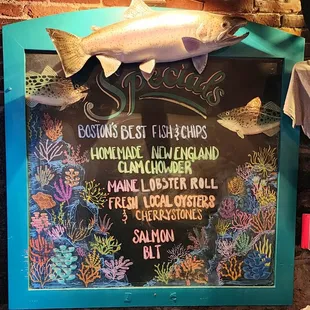 Specials
BOSTON'S BEST FISH & CHIPS
HOMEMADE NEW ENGLAND
CLAM CHOWDER
MAINE LOBSTER ROLL
FRESH LOCAL OYSTERS
& CHERRYSTONES
SALMON
BLT